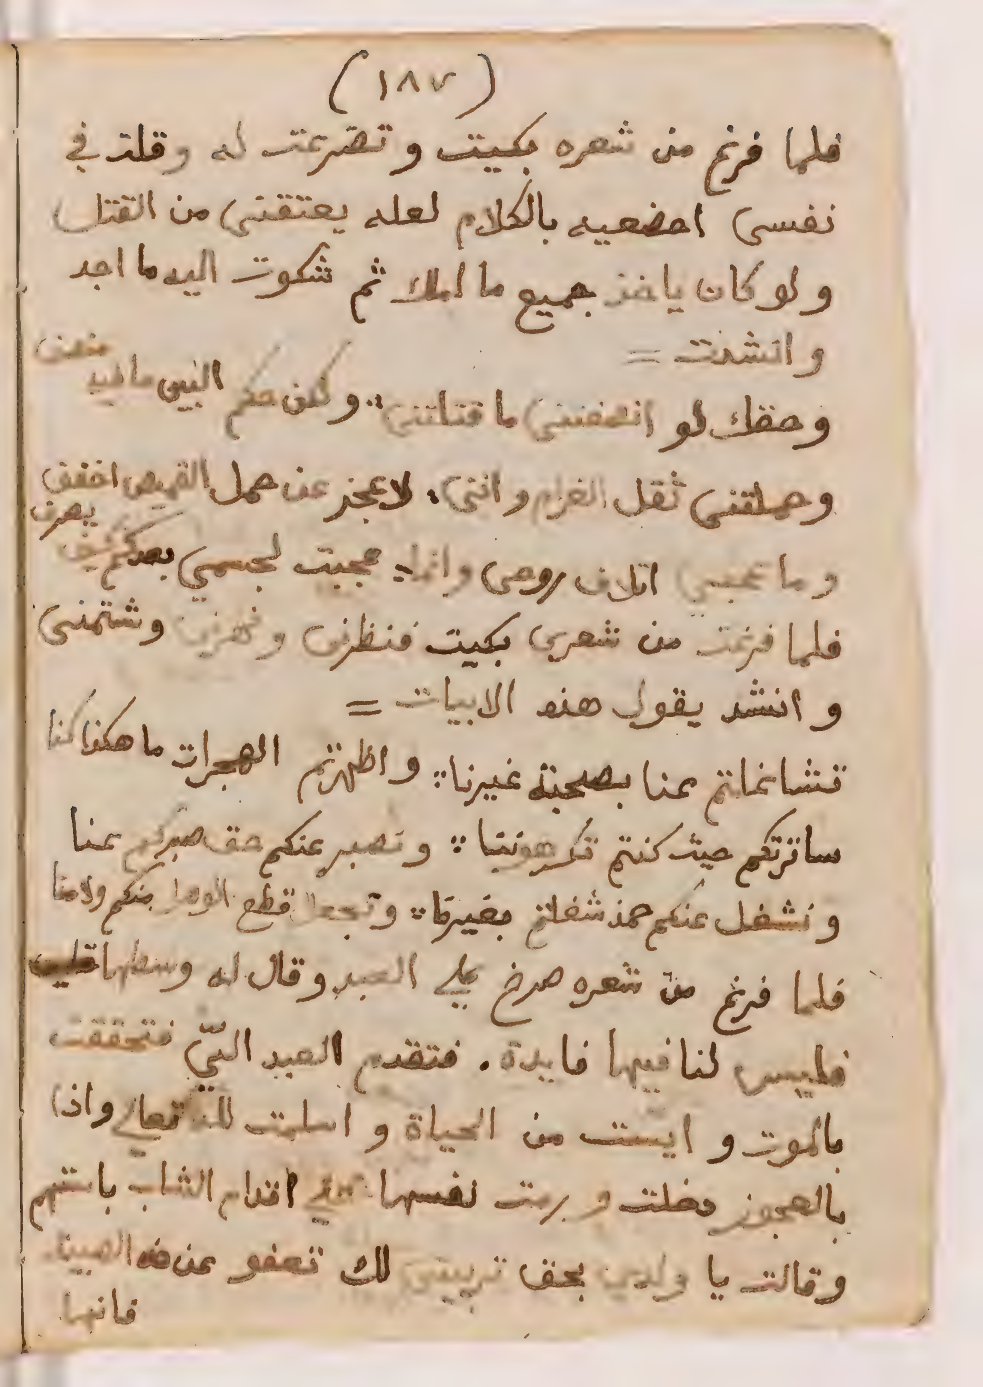 (١٨٧)
فلما فرغ من شعره بكيت وتضرعت له وقلت في
نفسي اخضعيه بالكلام لعله يعتقني من القتل
ولو كان ياخذ جميع ما املك ثم شكوت اليه ما اجد
وانشدت =
وحقك لو انصفتني ما قتلتني ؞ ولكن حكم البين ما فيه منصف
وحملتني ثقل الغرام وانني ؞ لاعجز عن حمل القميص اخفف
وما عجبي اتلاف روحي وانما ؞ عجبت لجسمي بعدكم كيف يعرف
فلما فرغت من شعري بكيت فنظرني ونهرني وشتمني
وانشد يقول هذه الابيات =
تشاغلتم عنا بصحبة غيرنا ؞ واظهرتم الهجران ما هكذا كنا
ساترككم حيث كنتم تكرهوننا ؞ ونصبر عنكم حق صبركم عنا
ونشغل عنكم مذ شغلتم بغيرنا ؞ ونجعل قطع الوصل منكم ولا منا
فلما فرغ من شعره صرخ علي العبد وقال له وسطها
فليس لنا فيها فايدة . فتقدم العبد اليّ فتحققت
بالموت وايست من الحياة واسلمت لله تعالي واذا
بالعجوز دخلت ورمت نفسها علي اقدام الشاب باستهم
وقالت يا ولدي بحق تربيتي لك تعفو عن هذه الصبية
فانها